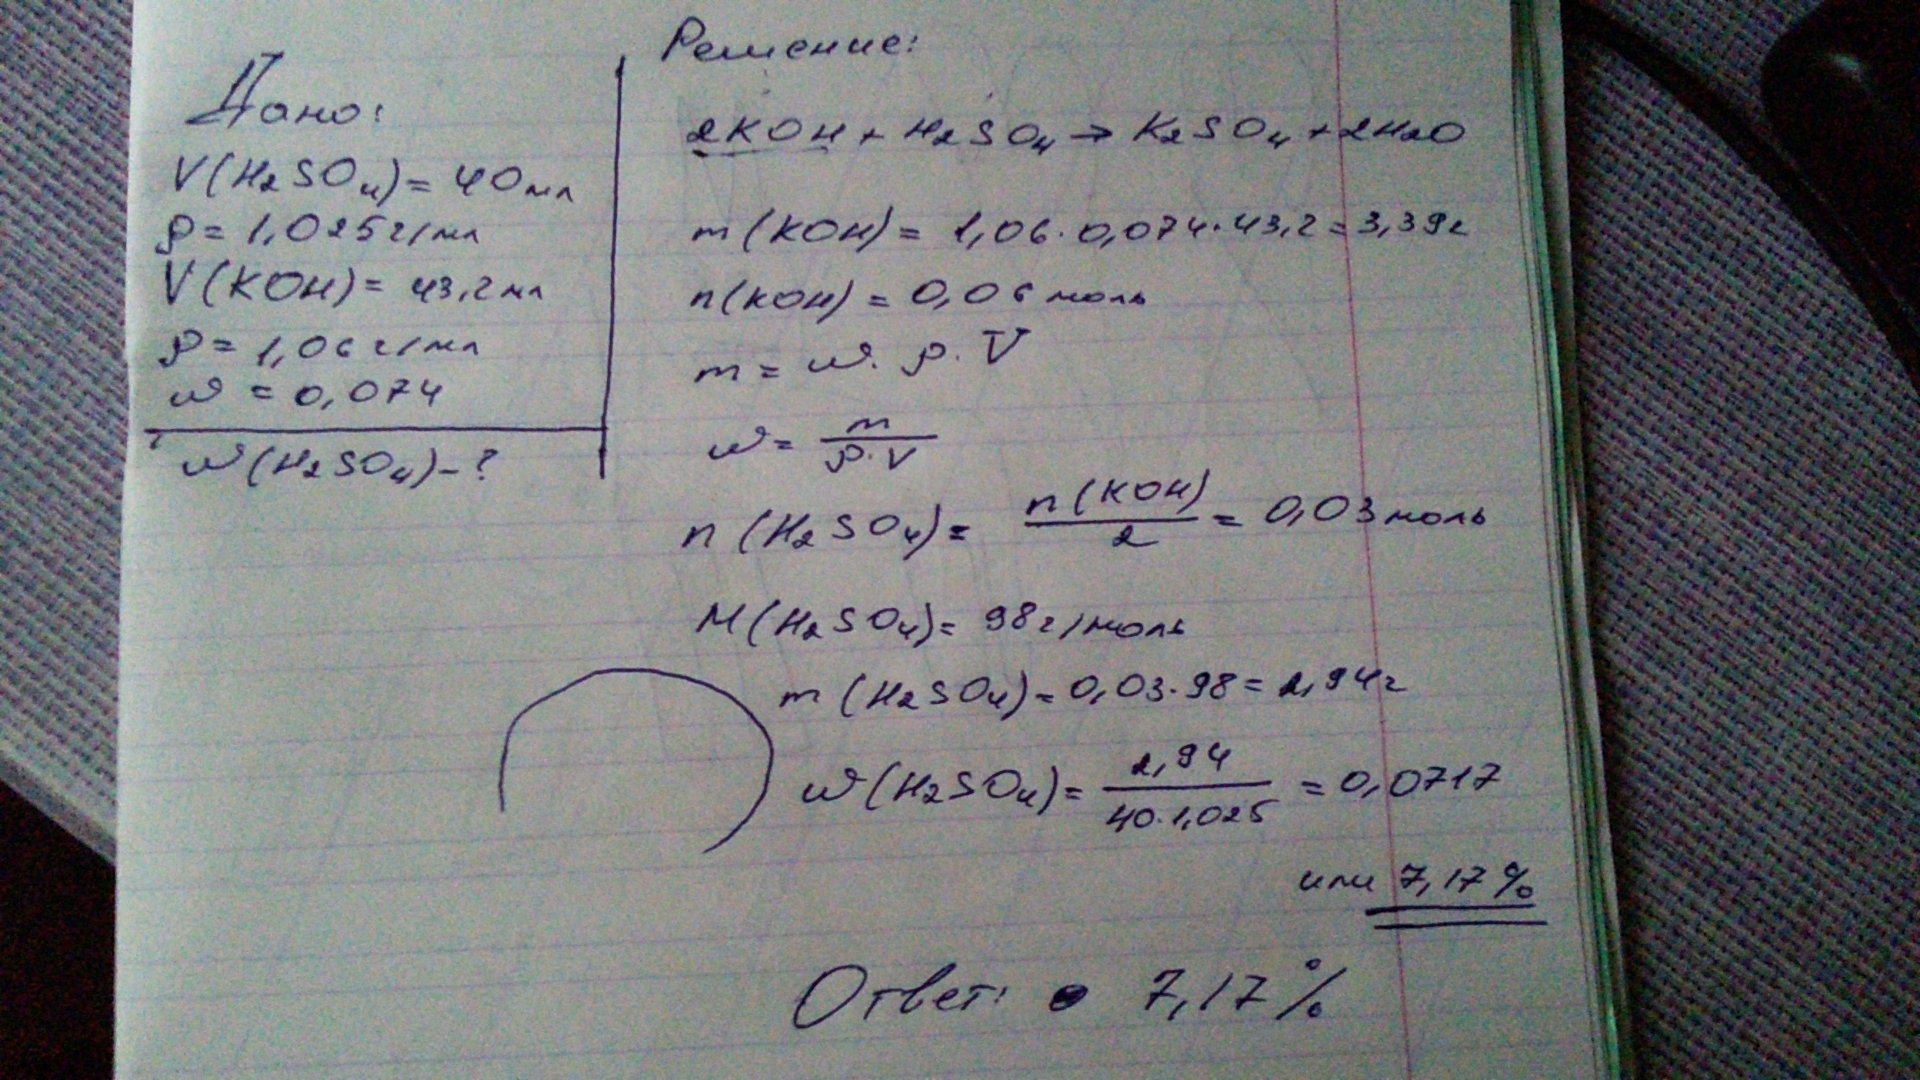 Дано:
V(H₂SO₄)= 40мл
ρ= 1,025г/мл
V(KOH)= 43,2мл
ρ= 1,06г/мл
ω = 0,074
ω(H₂SO₄)-?
Решение:
2KOH + H₂SO₄ → K₂SO₄ + 2H₂O
m(KOH)= 1,06·0,074·43,2=3,39г
n(KOH) = 0,06 моль
m = ω·ρ·V
ω = m/ρ·V
n(H₂SO₄)= n(KOH)/2 = 0,03 моль
M(H₂SO₄)= 98г/моль
m(H₂SO₄)=0,03·98=2,94г
ω(H₂SO₄)= 2,94/40·1,025 = 0,0717
или 7,17%
Ответ: 7,17%